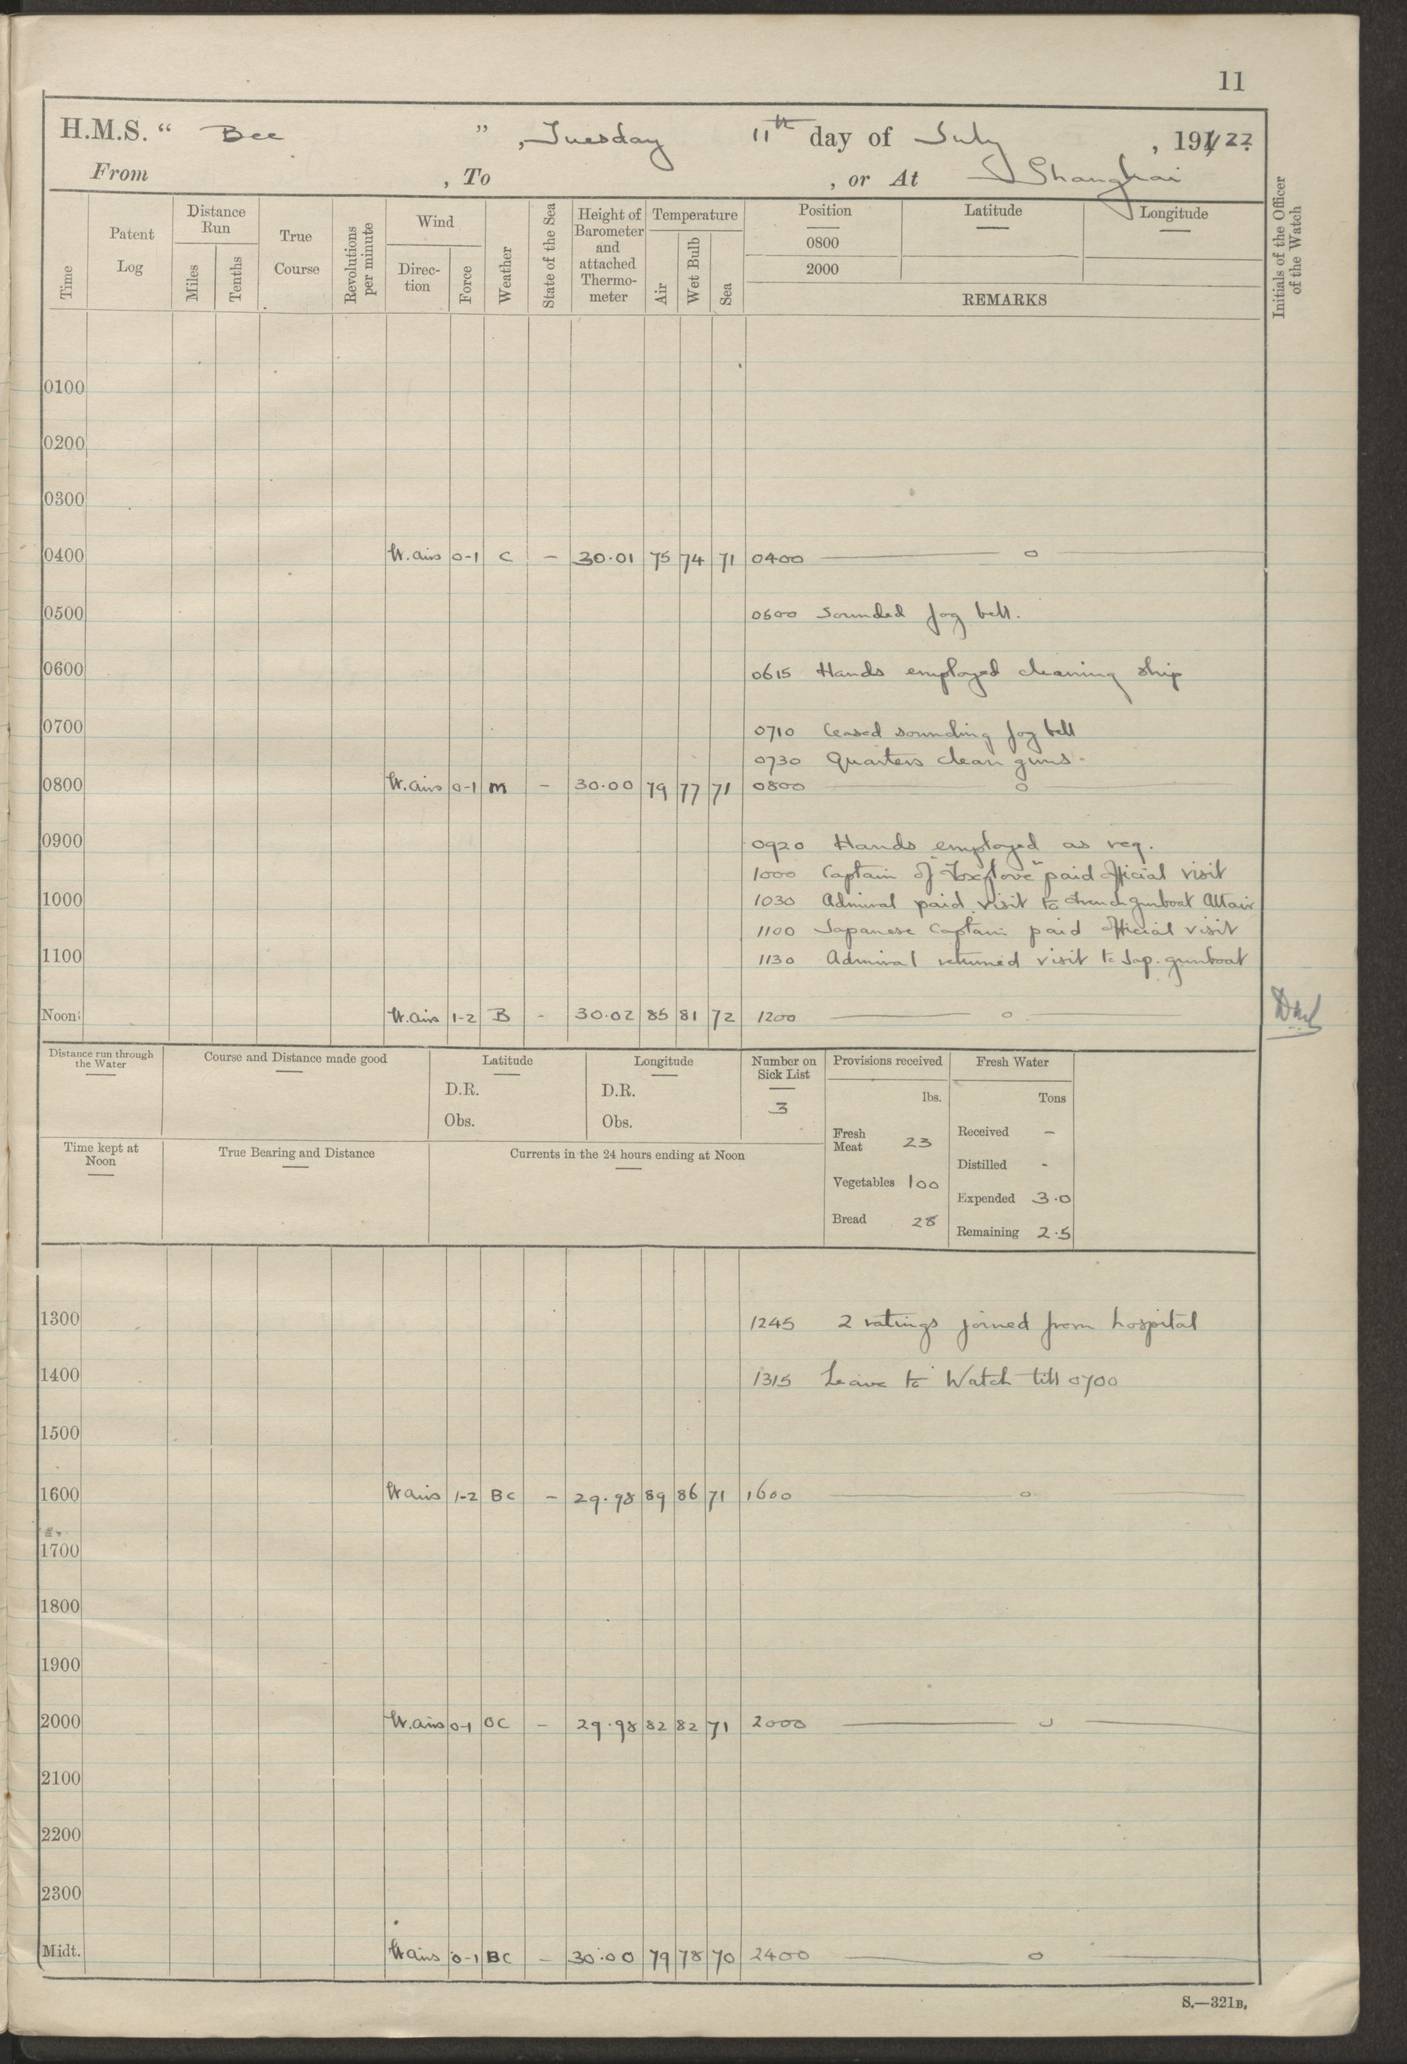 11
H.M.S. “ Bee ”, Tuesday 11th day of July, 191/22.
From , To , or At Shanghai
Time
Patent Log
Distance Run
Miles
Tenths
True Course
Revolutions per minute
Wind
Direc-tion
Force
Weather
State of the Sea
Height of Barometer and attached Thermo-meter
Temperature
Air
Wet Bulb
Sea
Position
Latitude
Longitude
0800
2000
REMARKS
Initials of the Officer of the Watch
0100
0200
0300
0400 W. airs 0-1 C - 30.01 75 74 71 0400 o
0500 0500 Sounded fog bell.
0600 0615 Hands employed cleaning ship
0700 0710 Ceased sounding fog bell
0730 Quarters clean guns.
0800 W. airs 0-1 m - 30.00 79 77 71 0800 o
0900 0920 Hands employed as req.
1000 Captain of "Foxglove" paid official visit
1000 1030 Admiral paid visit to French gunboat Altair
1100 Japanese Captain paid official visit
1100 1130 Admiral returned visit to Jap. gunboat
Noon W. airs 1-2 B - 30.02 85 81 72 1200 o
Distance run through the Water
Course and Distance made good
Latitude
D.R.
Obs.
Longitude
D.R.
Obs.
Number on Sick List
3
Provisions received
lbs.
Fresh Meat 23
Vegetables 100
Bread 28
Fresh Water
Tons
Received -
Distilled -
Expended 3.0
Remaining 2.5
Time kept at Noon
True Bearing and Distance
Currents in the 24 hours ending at Noon
1300 1245 2 ratings joined from hospital
1400 1315 Leave to Watch till 0700
1500
1600 W airs 1-2 BC - 29.98 89 86 71 1600 o
1700
1800
1900
2000 W. airs 0-1 OC - 29.98 82 82 71 2000 o
2100
2200
2300
Midt. W airs 0-1 BC - 30.00 79 78 70 2400 o
S.—321B.